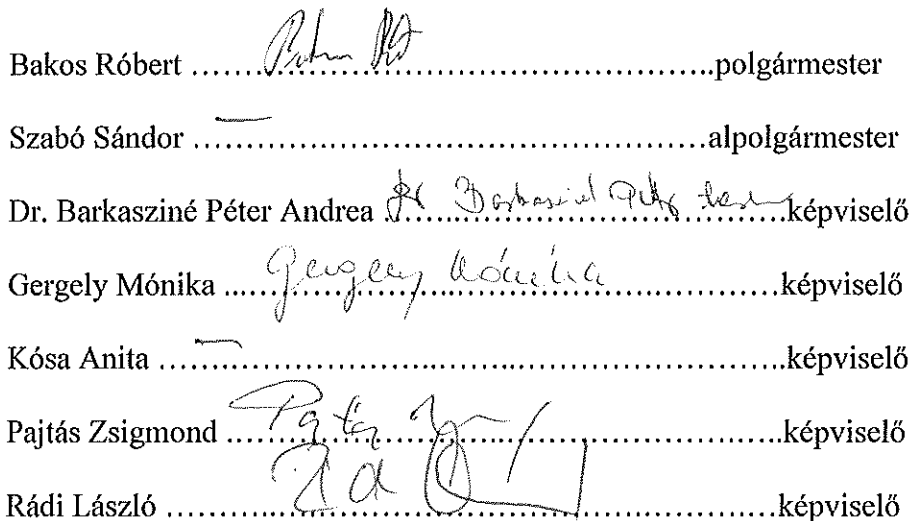 Bakos Róbert ....................................................polgármester
Szabó Sándor ................................................alpolgármester
Dr. Barkasziné Péter Andrea Dr Barkasziné Péter ........................képviselő
Gergely Mónika ...Gergely Mónika...................képviselő
Kósa Anita ..........................................................képviselő
Pajtás Zsigmond ....................................................képviselő
Rádi László ..........................................................képviselő